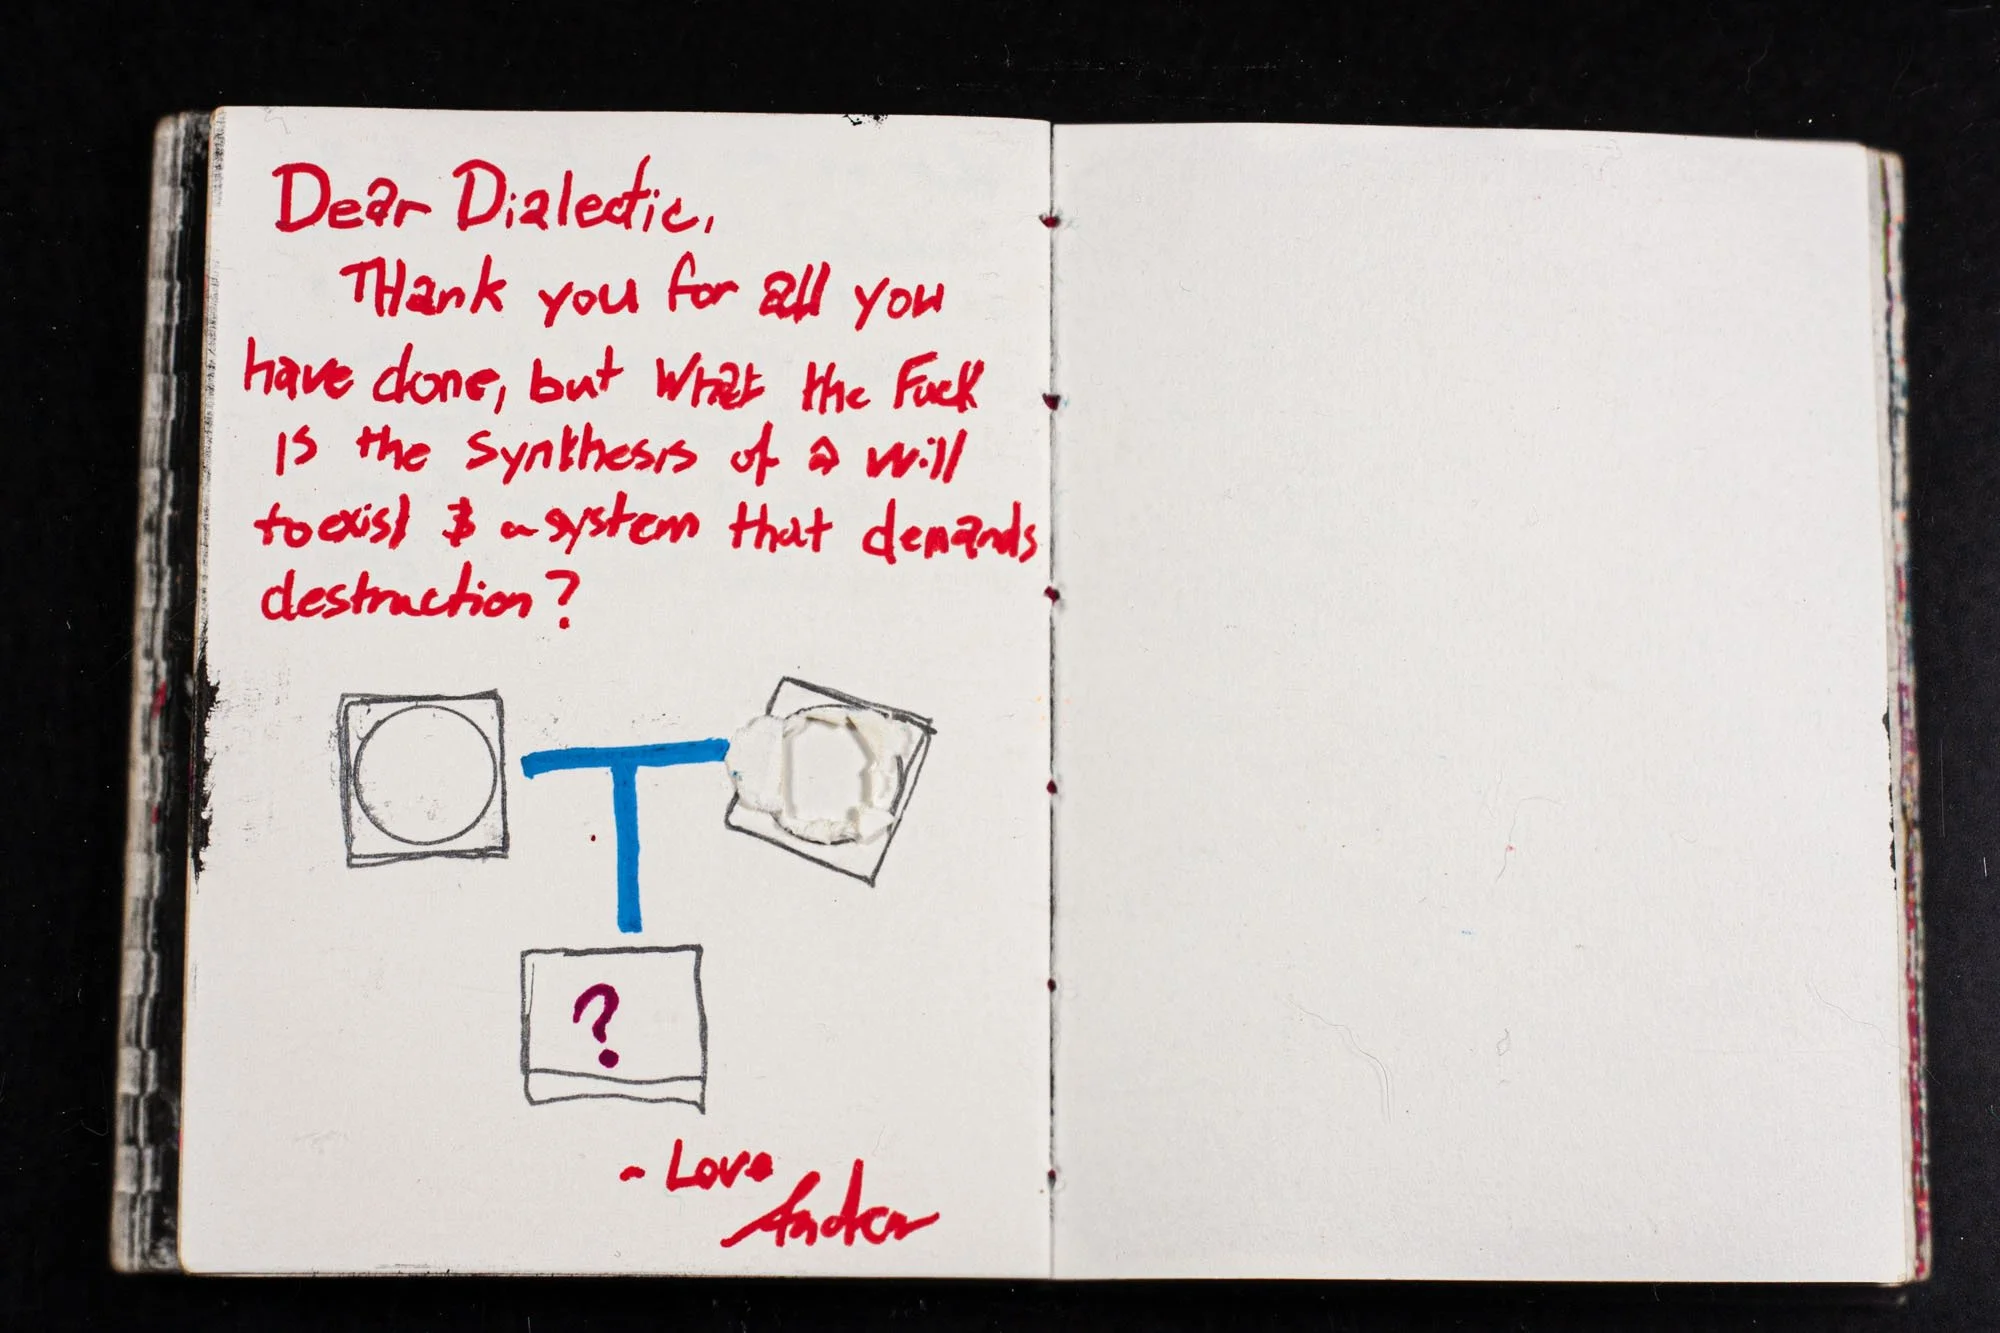 Dear Dialectic,
THank you for all you
have done, but What the Fuck
is the synthesis of a will
to exist & a system that demands
destruction?
?
- Love